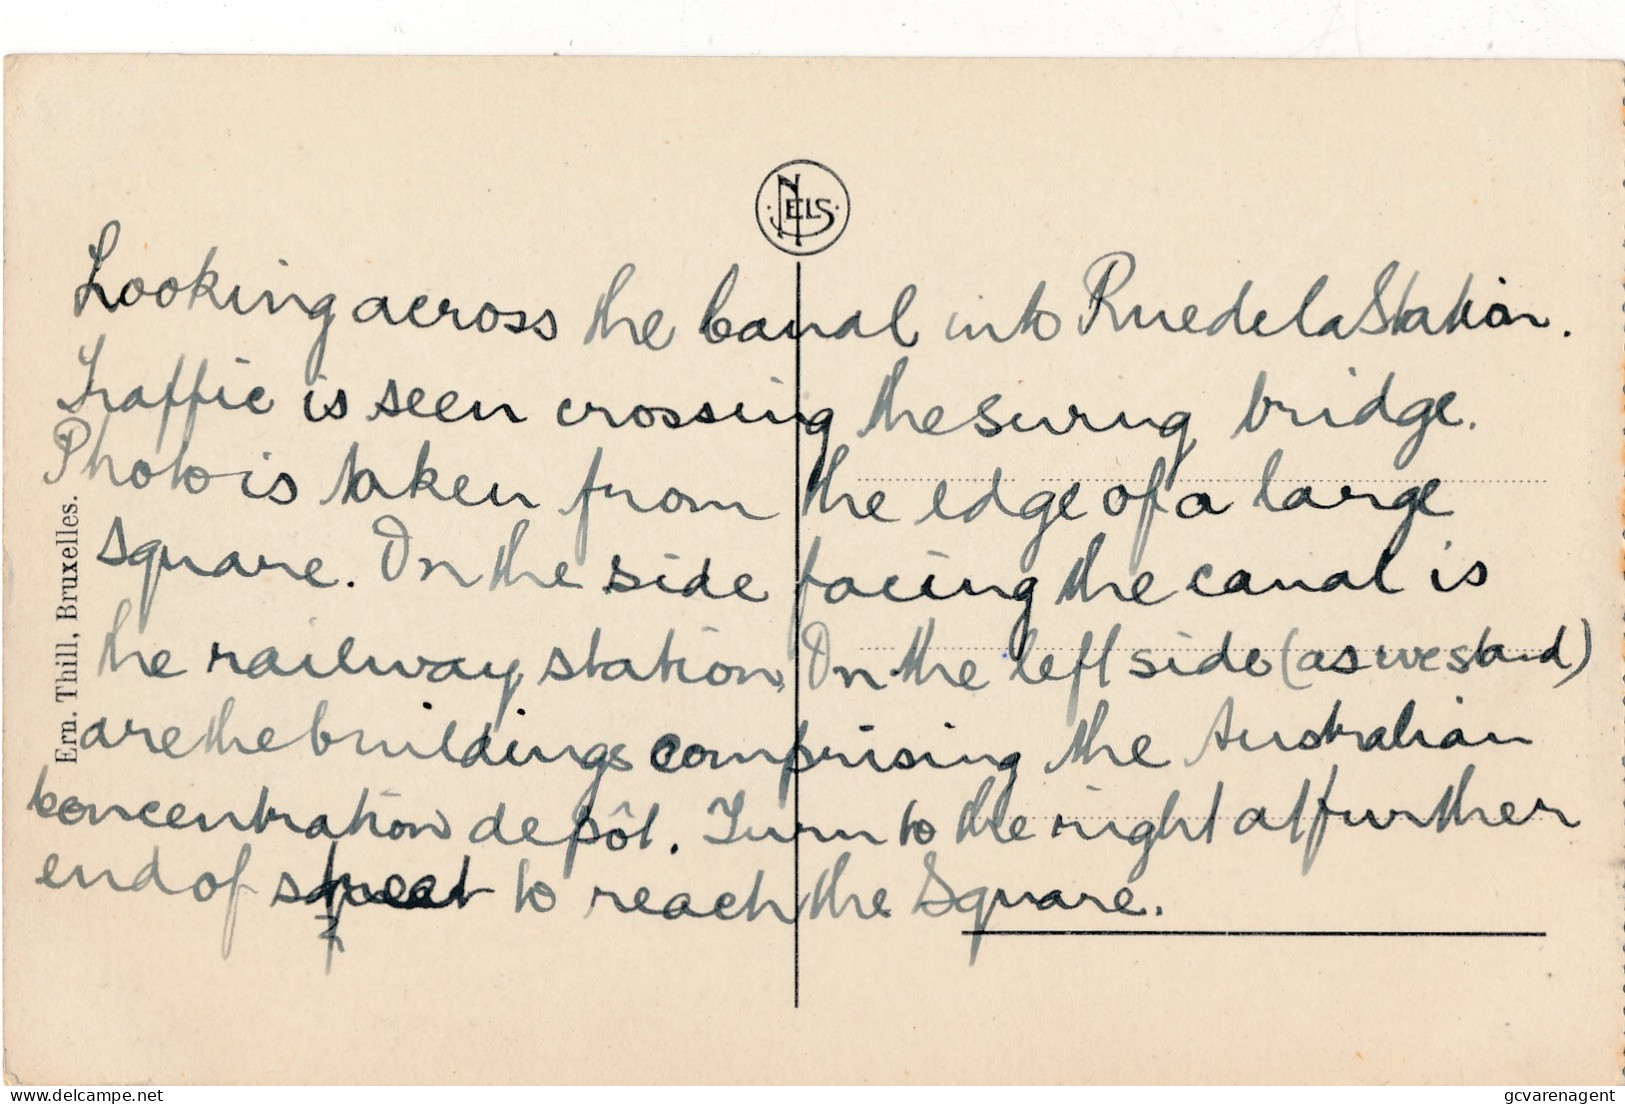 NELS
Looking across the Canal into Rue de la Station.
Traffic is seen crossing the swing bridge.
Photo is taken from the edge of a large
square. On the side facing the canal is
the railway station. On the left side (as we stand)
are the buildings comprising the Australian
Concentration depôt. Turn to the right at further
end of street to reach the Square.
Ern. Thill, Bruxelles.
delcampe.net
gcvarenagent